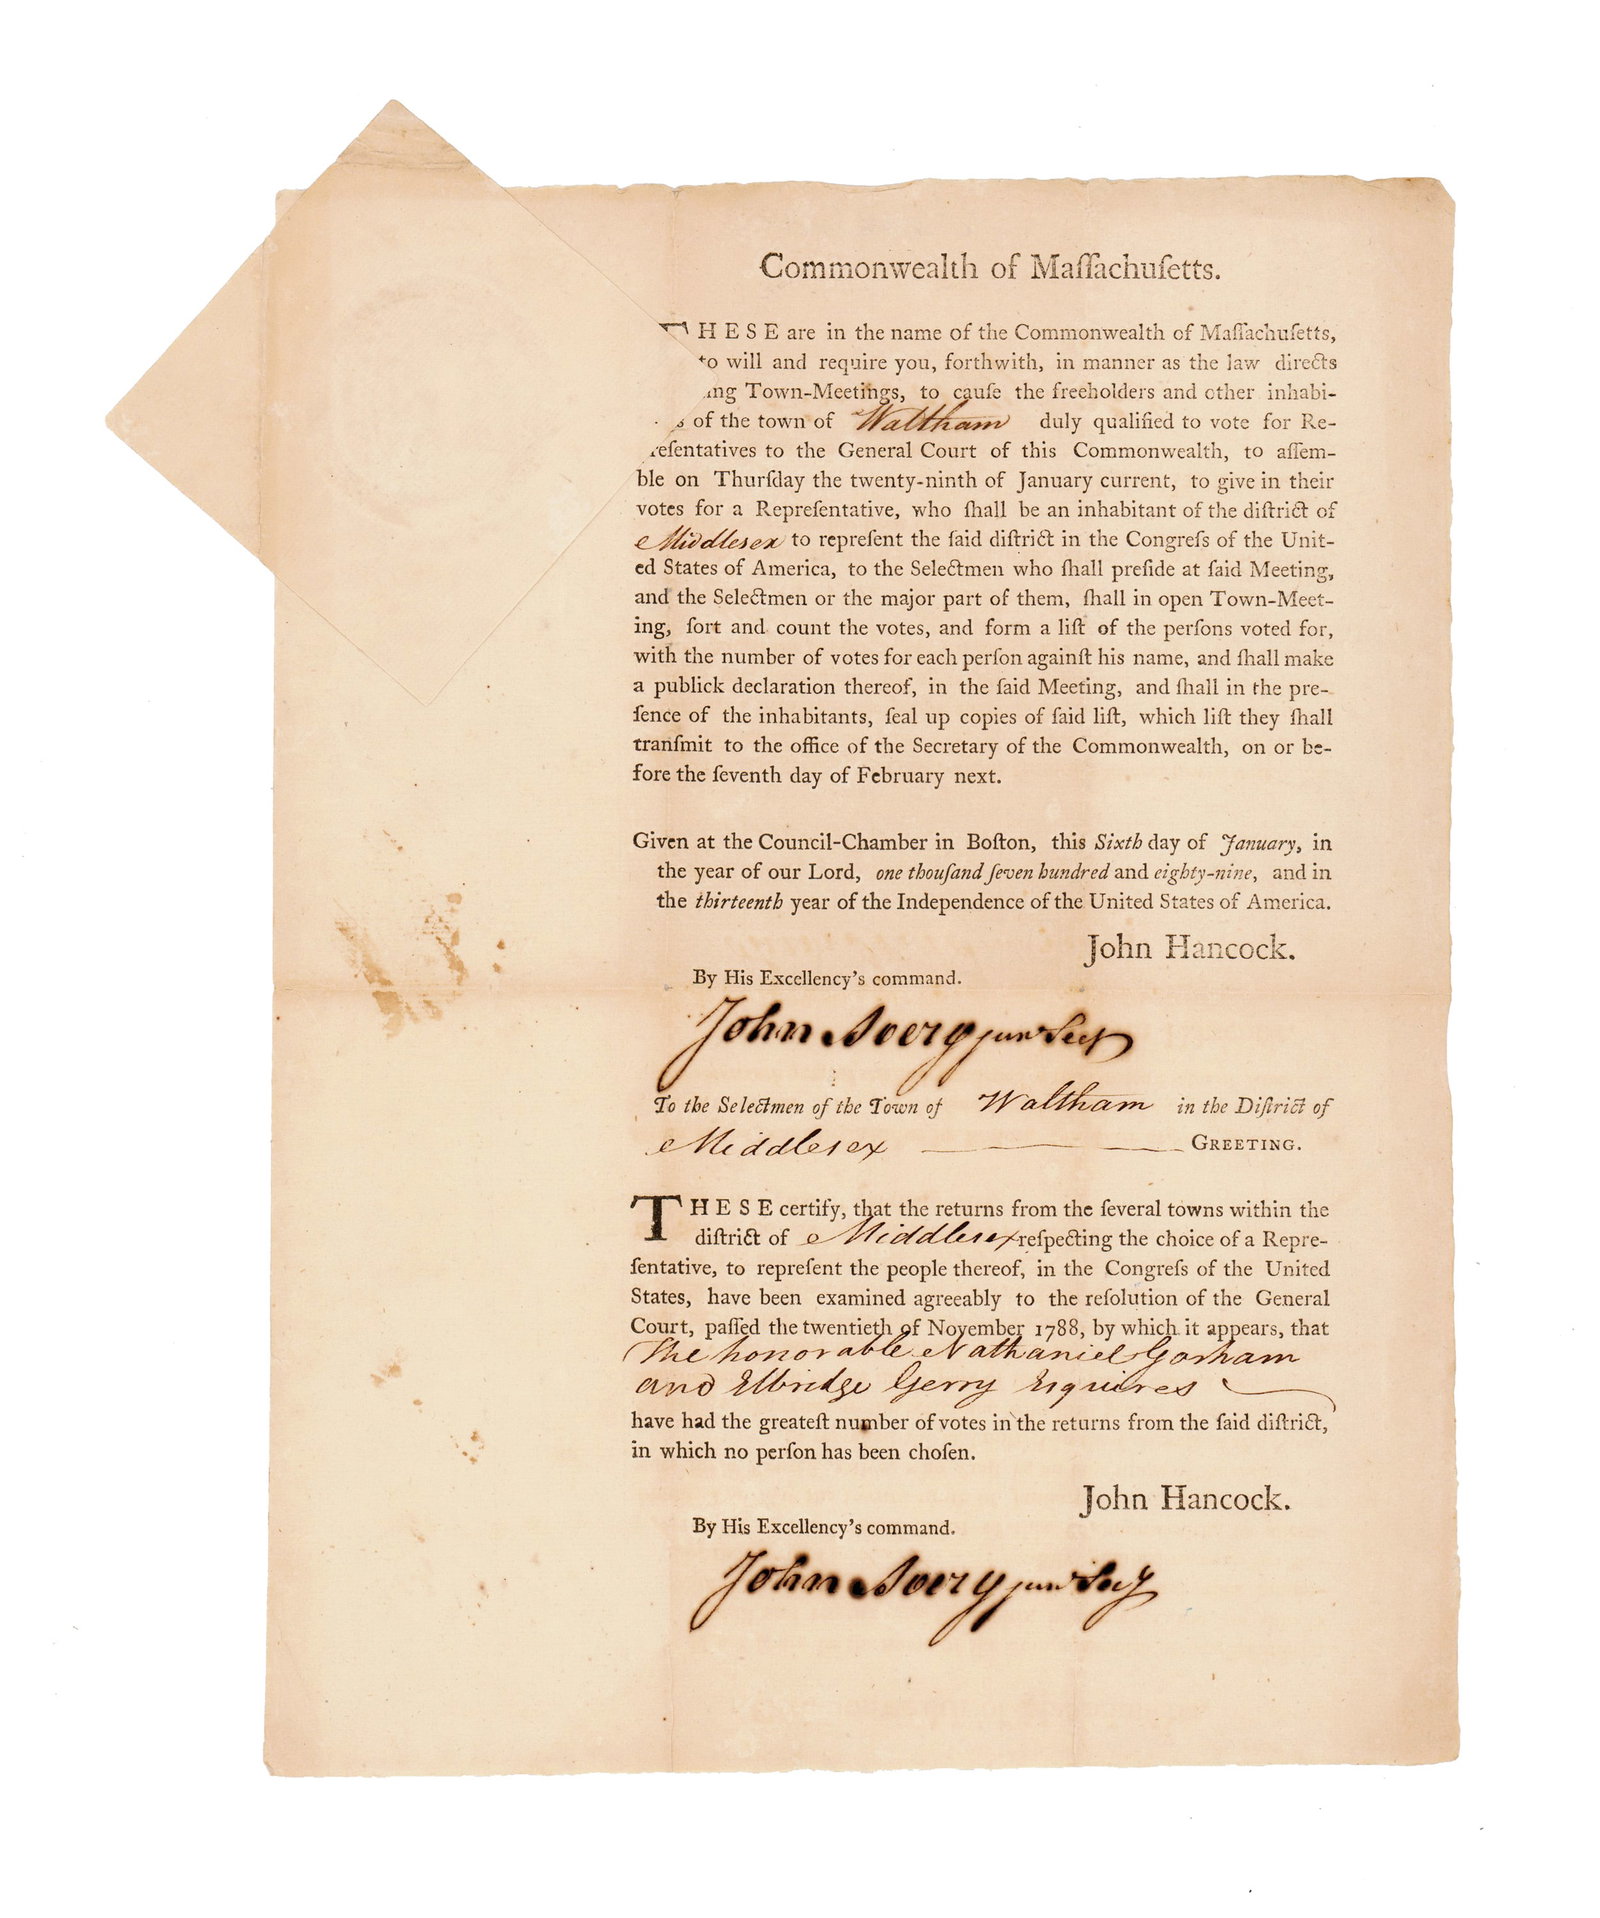 Commonwealth of Maſſachuſetts.
THESE are in the name of the Commonwealth of Maſſachuſetts,
to will and require you, forthwith, in manner as the law directs
Town-Meetings, to cauſe the freeholders and other inhabi-
of the town of Waltham duly qualified to vote for Re-
reſentatives to the General Court of this Commonwealth, to aſſem-
ble on Thurſday the twenty-ninth of January current, to give in their
votes for a Repreſentative, who ſhall be an inhabitant of the diſtrict of
Middlesex to repreſent the ſaid diſtrict in the Congreſs of the Unit-
ed States of America, to the Selectmen who ſhall preſide at ſaid Meeting,
and the Selectmen or the major part of them, ſhall in open Town-Meet-
ing, ſort and count the votes, and form a liſt of the perſons voted for,
with the number of votes for each perſon againſt his name, and ſhall make
a publick declaration thereof, in the ſaid Meeting, and ſhall in the pre-
ſence of the inhabitants, ſeal up copies of ſaid liſt, which liſt they ſhall
tranſmit to the office of the Secretary of the Commonwealth, on or be-
fore the ſeventh day of February next.
Given at the Council-Chamber in Boſton, this Sixth day of January, in
the year of our Lord, one thouſand ſeven hundred and eighty-nine, and in
the thirteenth year of the Independence of the United States of America.
John Hancock.
By His Excellency's command.
John Avery junr Secy
To the Selectmen of the Town of Waltham in the Diſtrict of
Middlesex GREETING.
THESE certify, that the returns from the ſeveral towns within the
diſtrict of Middlesex reſpecting the choice of a Repre-
ſentative, to repreſent the people thereof, in the Congreſs of the United
States, have been examined agreeably to the reſolution of the General
Court, paſſed the twentieth of November 1788, by which it appears, that
The honorable Nathaniel Gorham
and Elbridge Gerry Esquires
have had the greateſt number of votes in the returns from the ſaid diſtrict,
in which no perſon has been choſen.
John Hancock.
By His Excellency's command.
John Avery junr Secy